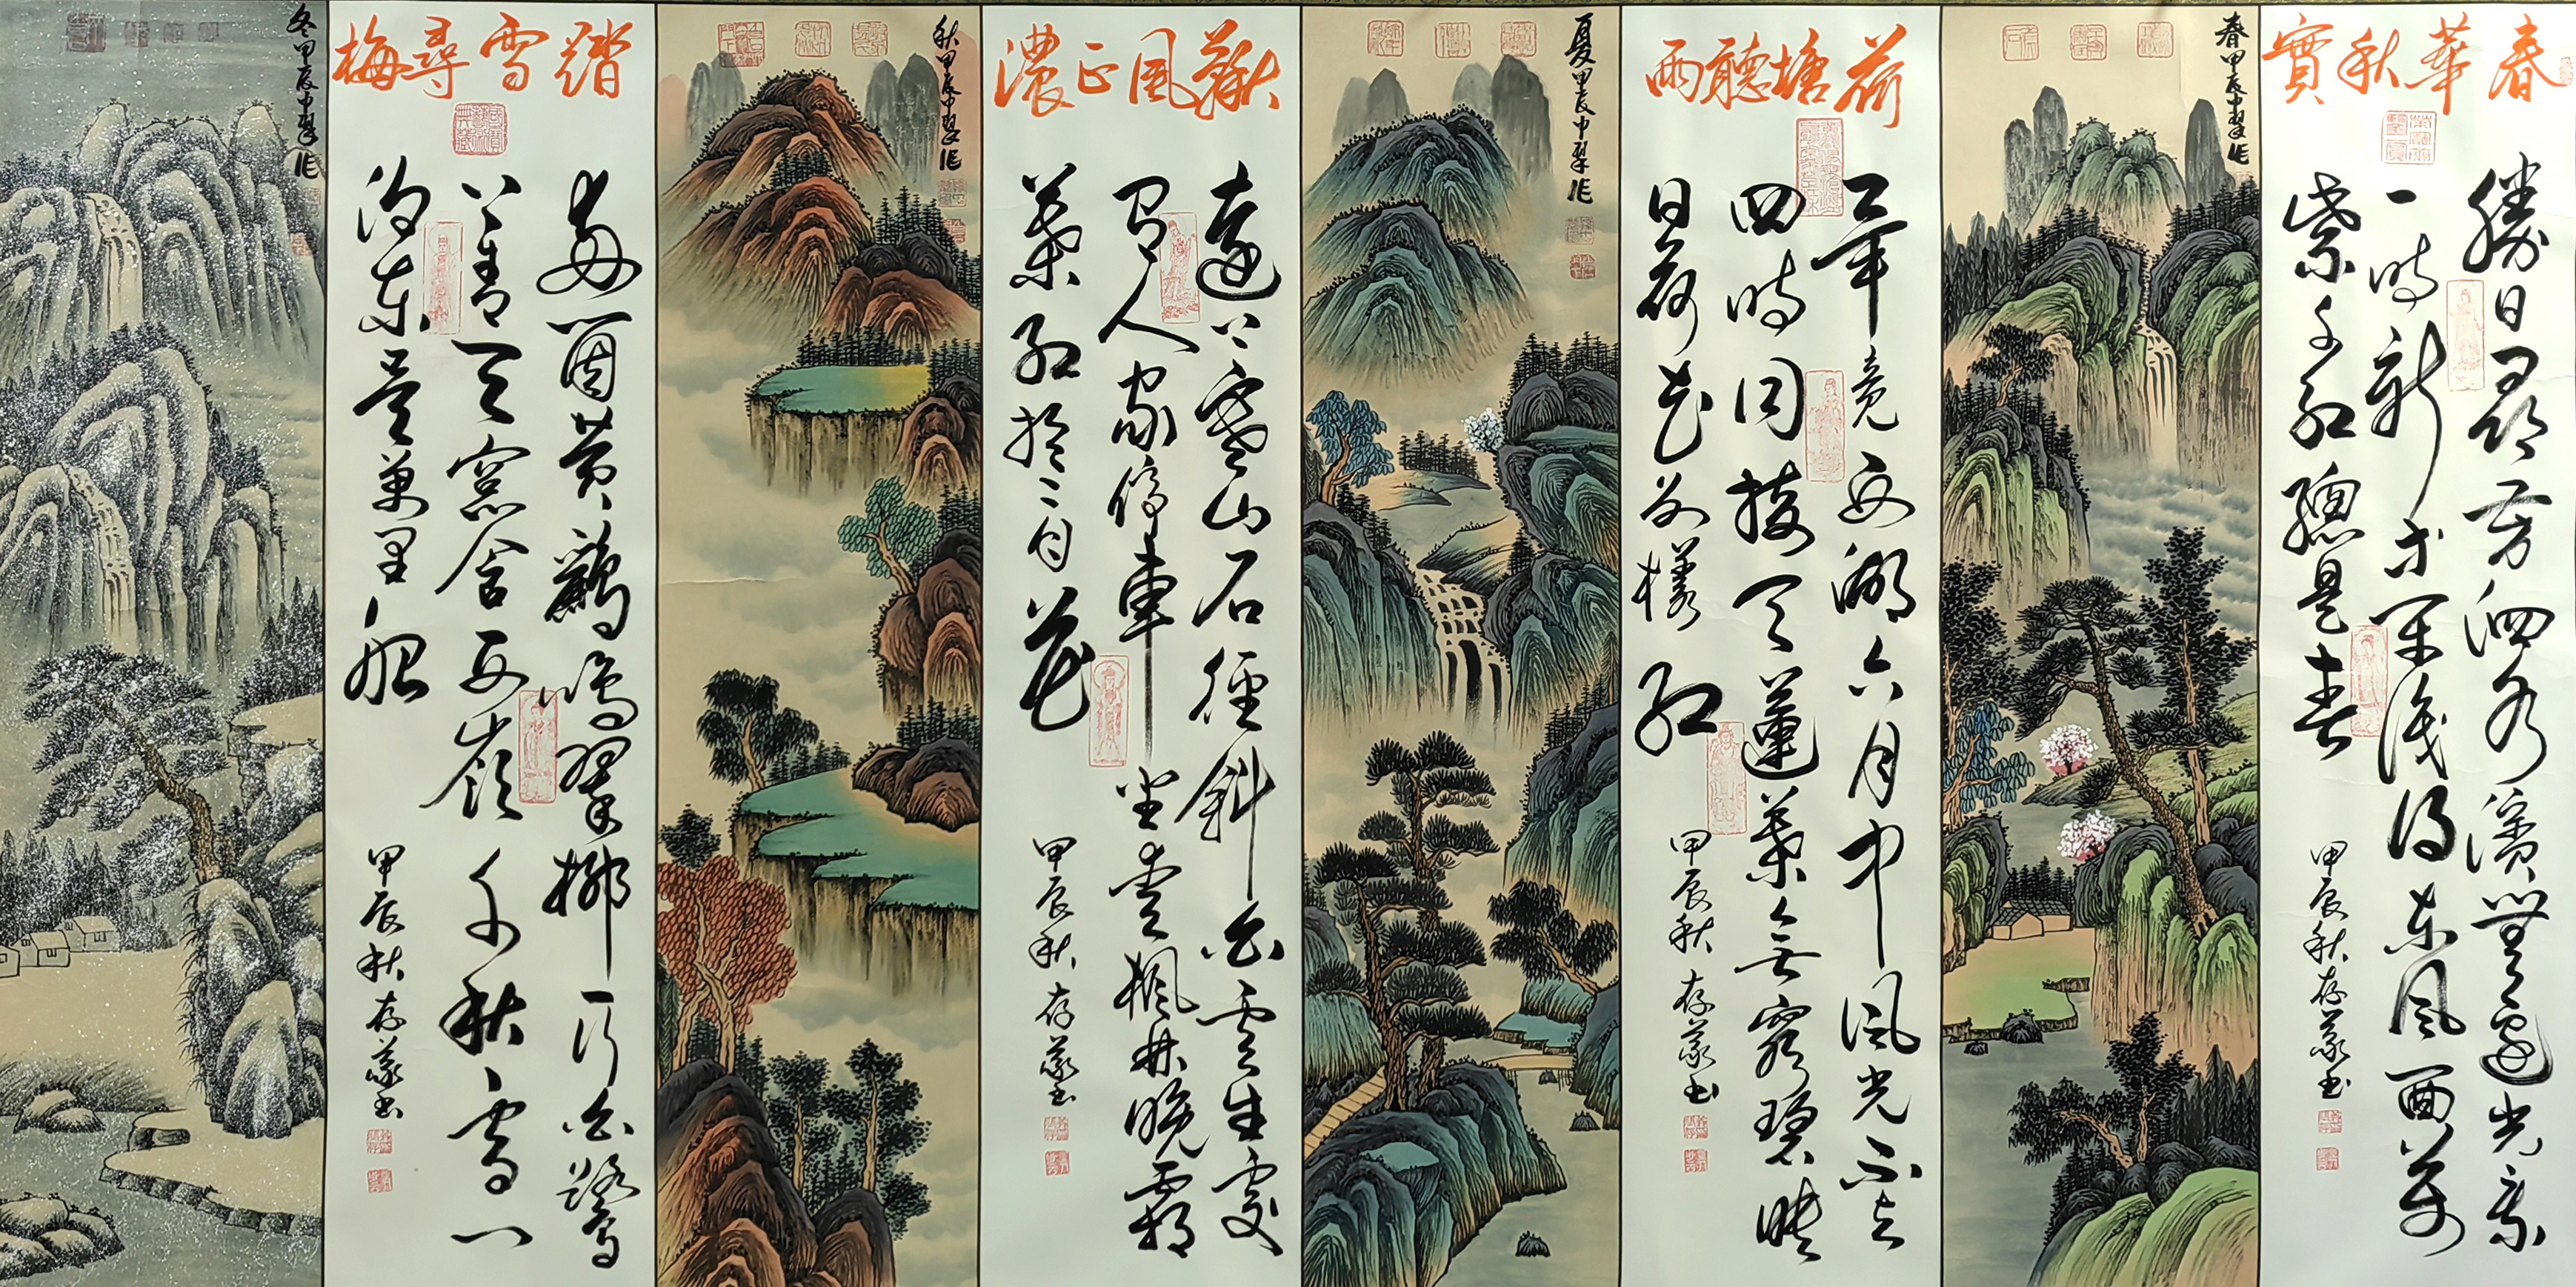 春華秋實
勝日尋芳泗水濱無邊光景
一時新等閒識得東風面萬
紫千紅總是春
甲辰秋存義書
春甲辰中翠作
荷塘聽雨
畢竟西湖六月中風光不與
四時同接天蓮葉無窮碧映
日荷花別樣紅
甲辰秋存義書
夏甲辰中翠作
秋風正濃
遠上寒山石徑斜白雲生處
有人家停車坐愛楓林晚霜
葉紅於二月花
甲辰秋存義書
秋甲辰中翠作
踏雪尋梅
兩個黃鸝鳴翠柳一行白鷺
上青天窗含西嶺千秋雪門
泊東吳萬里船
甲辰秋存義書
冬甲辰中翠作